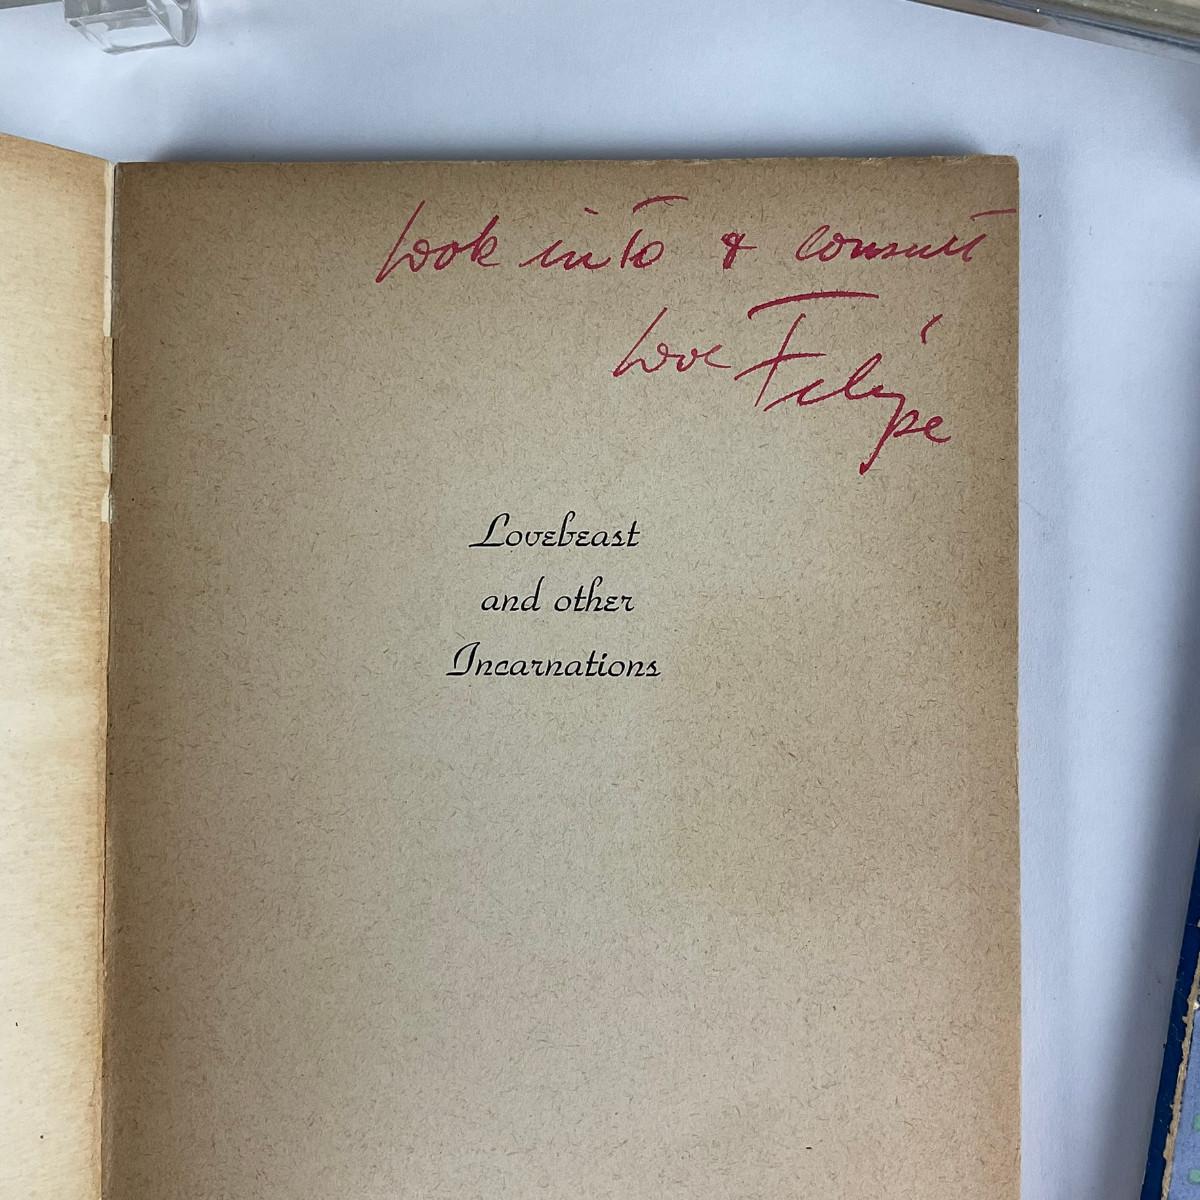 Look into & consult
Love Felipe
Lovebeast
and other
Incarnations